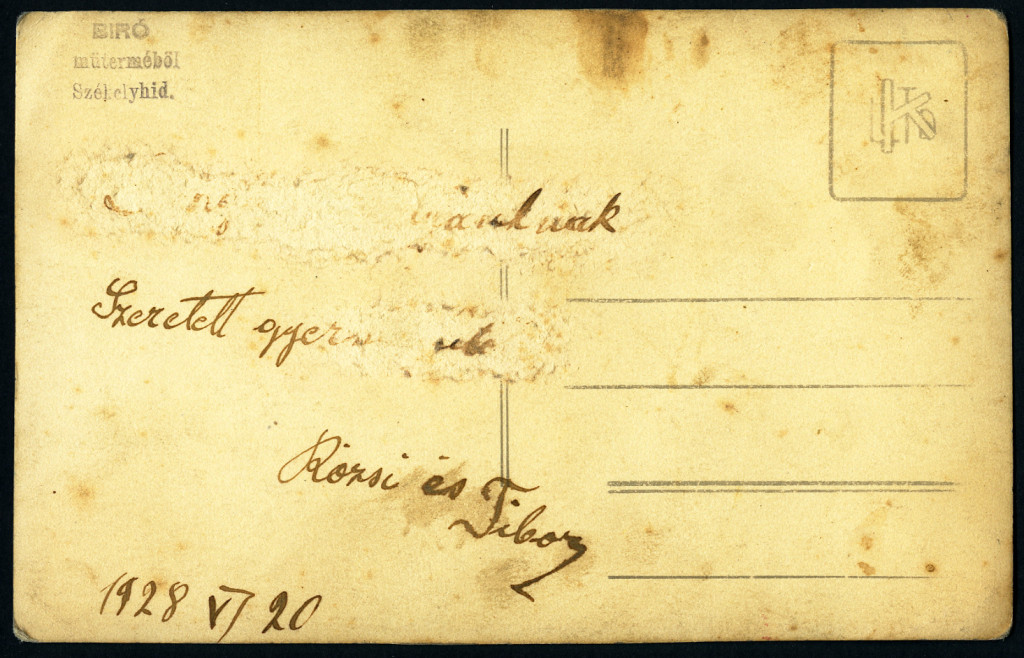 BIRÓ
műterméből
Székelyhid.
Szeretett
Rózsi és
Tibor
1928 VI 20